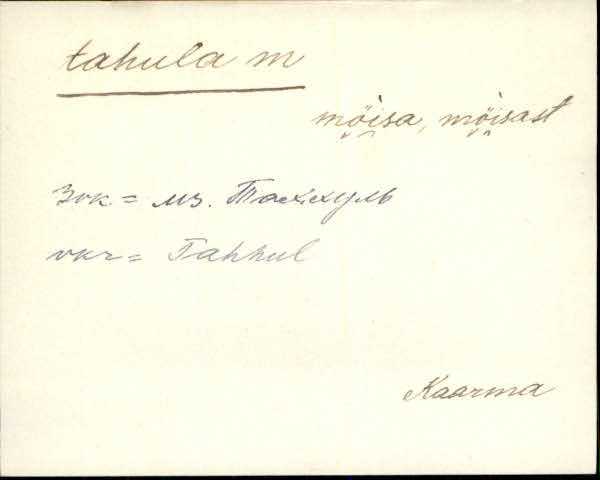 tahula m
möisa, möisast
3vк = мз. Таххуль
vкr = Tahhul
Kaarma